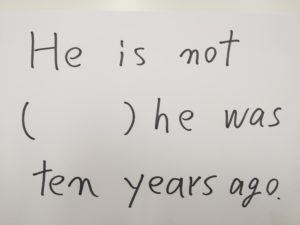 He is not
(      ) he was
ten years ago.